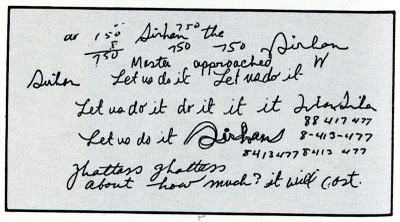 or 150 Sirhan 750 the
5
750 750 750 Sirhan
Master approached W
Sirhan Let us do it Let us do it
Let us do it do it it it
88 417 477
Let us do it Sirhans 8-413-477
8413477 8413 477
Ghattass ghattass
about how much? it will cost.